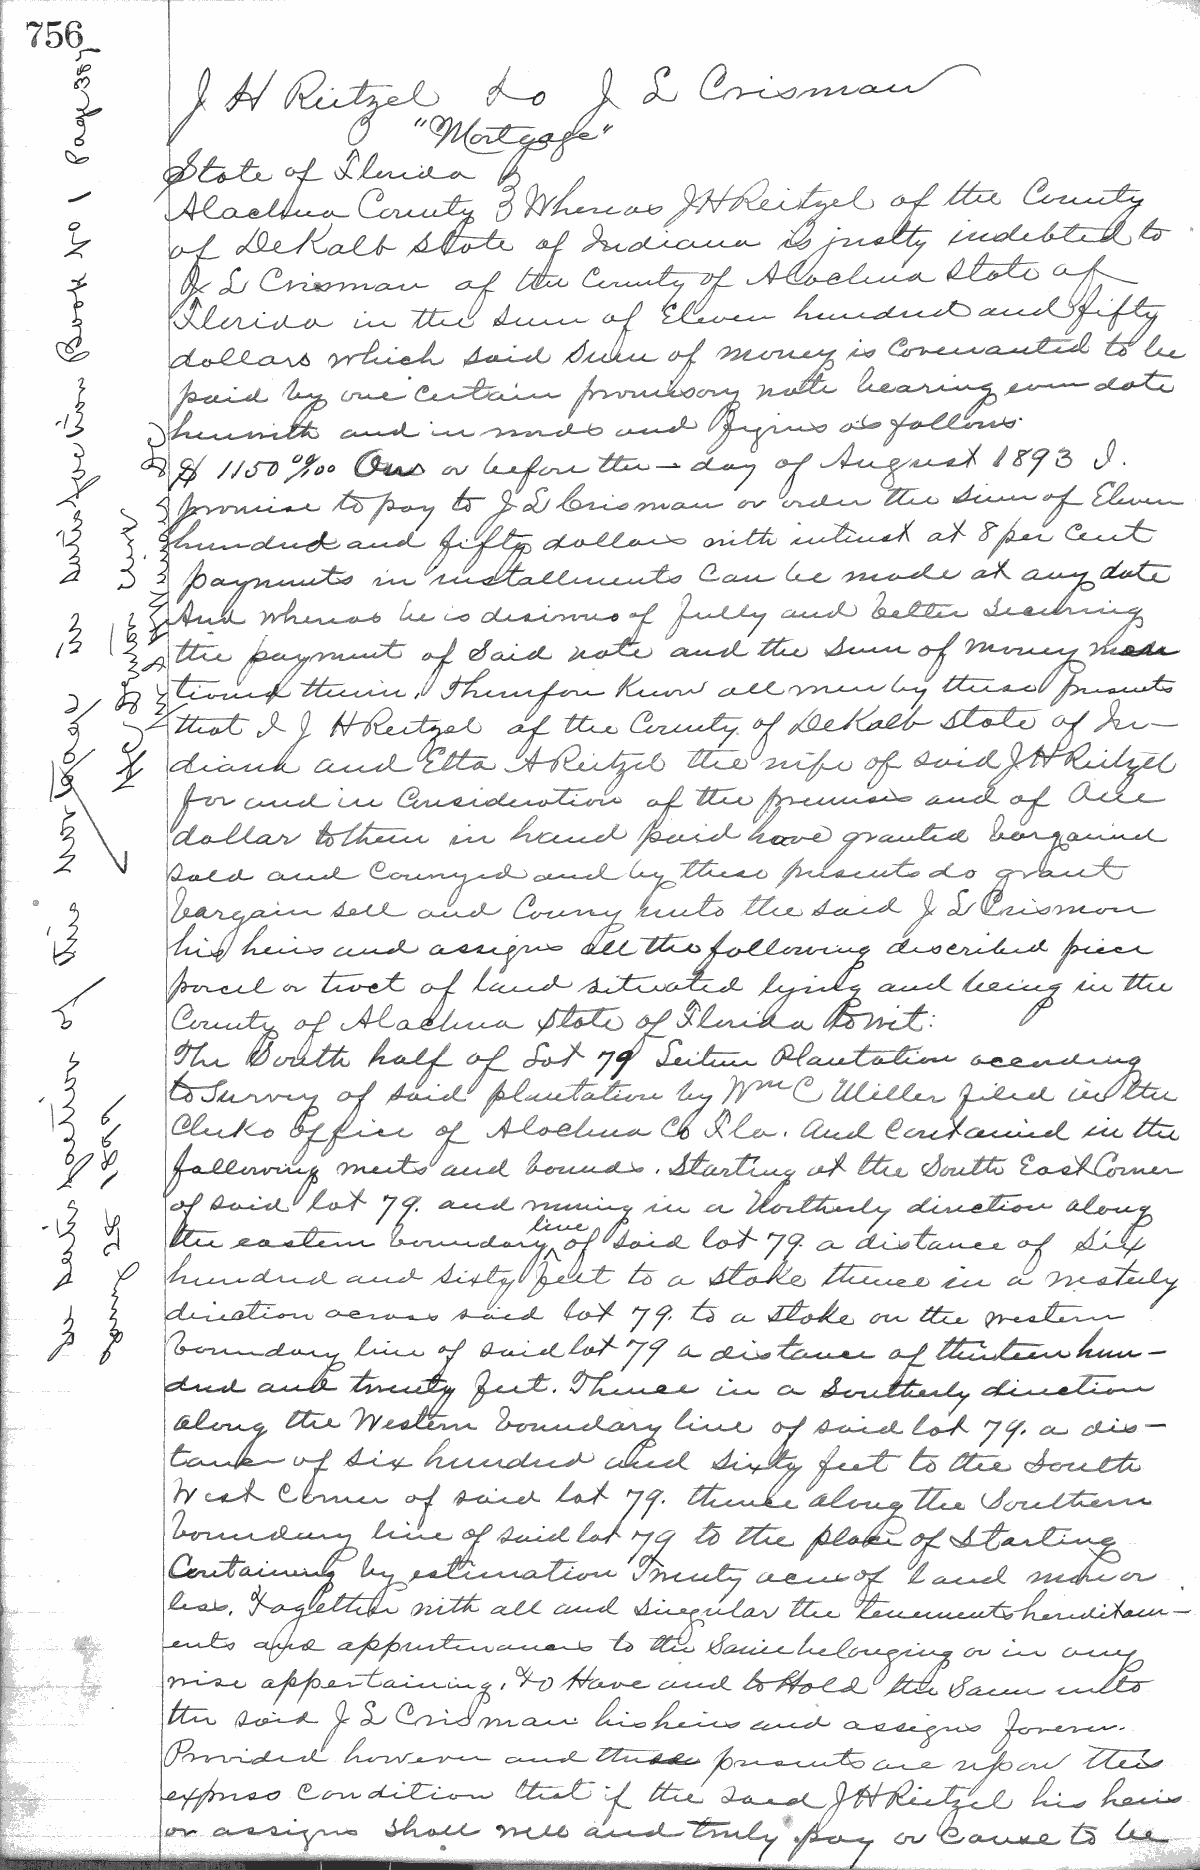 756
J H Reitzel to J L Crisman
"Mortgage"
State of Florida
Alachua County Whereas J H Reitzel of the County
of DeKalb State of Indiana is justly indebted to
J L Crisman of the County of Alachua State of
Florida in the Sum of Eleven hundred and fifty
dollars which said Sum of money is Covenanted to be
paid by one certain promisory note bearing even date
herewith and in words and figures as follows
$ 1150 00/100 On or before the — day of August 1893 I.
promise to pay to J L Crisman or order the Sum of Eleven
hundred and fifty dollars with interest at 8 per Cent
payments in installments Can be made at any date
And whereas he is desirous of fully and better Securing
the payment of Said note and the Sum of money men
tioned therein. Therefore Know all men by these presents
that I J H Reitzel of the County of DeKalb State of In-
diana and Etta A Reitzel the wife of said J H Reitzel
for and in Consideration of the premises and of One
dollar to them in hand paid have granted bargained
sold and Conveyed and by these presents do grant
bargain sell and Convey unto the said J L Crisman
his heirs and assigns all the following described piece
parcel or tract of land situated lying and being in the
County of Alachua State of Florida Towit:
The South half of Lot 79 Plantation according
to Survey of said plantation by Wm C Miller filed in the
Clerks office of Alachua Co Fla. And Contained in the
following meets and bounds. Starting at the South East Corner
of said lot 79. and running in a Northerly direction along
the eastern boundary line of said lot 79. a distance of Six
hundred and Sixty feet to a Stake thence in a westerly
direction across said lot 79. to a Stake on the western
boundary line of said lot 79 a distance of thirteen hun-
dred and twenty feet. Thence in a Southerly direction
along the Western boundary line of said lot 79. a dis-
tance of six hundred and Sixty feet to the South
West Corner of said lot 79. thence along the Southern
boundary line of said lot 79 to the place of Starting
Containing by estimation Twenty acres of land more or
less. Together with all and Singular the tenements hereditam-
ents and appurtenances to the Same belonging or in any
wise appertaining. To Have and to Hold the Same unto
the said J L Crisman his heirs and assigns forever.
Provided however and these presents are upon this
express Condition that if the said J H Reitzel his heirs
or assigns Shall well and truly pay or Cause to be
For Satisfaction of this Mortgage see Satisfaction Book No 1 Page 387